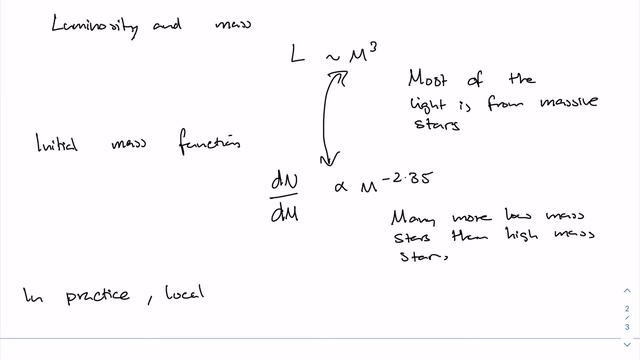 Luminosity and mass
L ~ M³
Most of the
light is from massive
stars
Initial mass function
dN/dM ∝ M^-2.35
Many more low mass
stars than high mass
stars
In practice, local
2
/
3